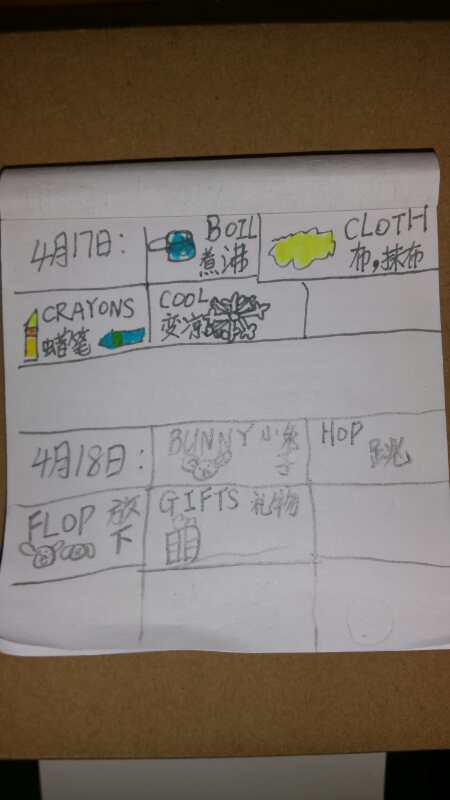 4月17日:
BOIL
煮沸
CLOTH
布,抹布
CRAYONS
蜡笔
COOL
变凉
4月18日:
BUNNY 小兔子
HOP
跳
FLOP 放下
GIFTS 礼物